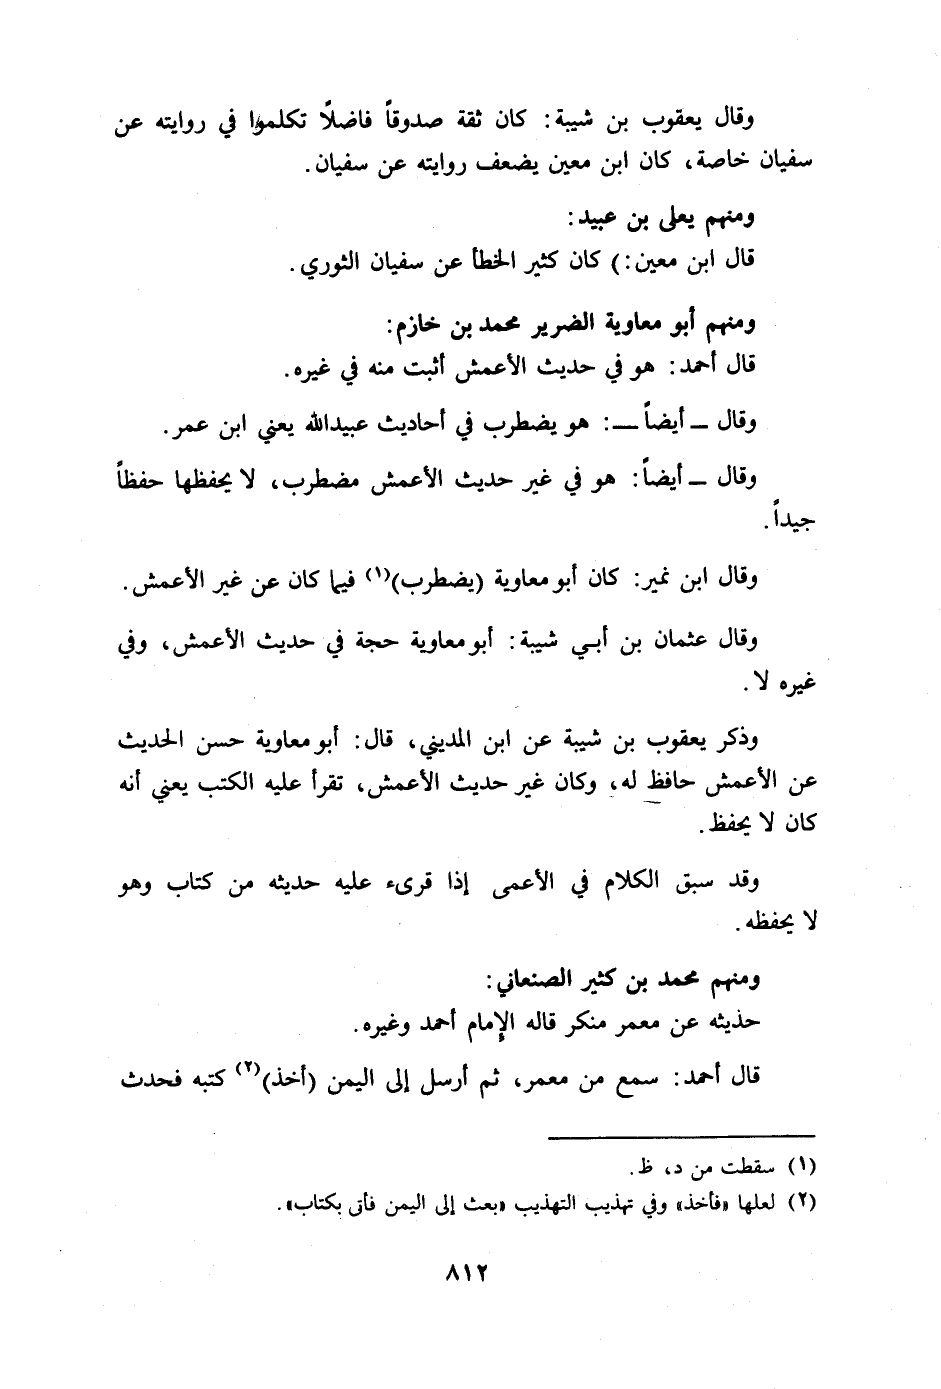 وقال يعقوب بن شيبة: كان ثقة صدوقاً فاضلًا تكلموا في روايته عن
سفيان خاصة، كان ابن معين يضعف روايته عن سفيان.
ومنهم يعلى بن عبيد:
قال ابن معين:) كان كثير الخطأ عن سفيان الثوري.
ومنهم أبو معاوية الضرير محمد بن خازم:
قال أحمد: هو في حديث الأعمش أثبت منه في غيره.
وقال ــ أيضاً ــ: هو يضطرب في أحاديث عبيدالله يعني ابن عمر.
وقال ــ أيضاً: هو في غير حديث الأعمش مضطرب، لا يحفظها حفظاً
جيداً.
وقال ابن نمير: كان أبو معاوية (يضطرب)(١) فيما كان عن غير الأعمش.
وقال عثمان بن أبـي شيبة: أبو معاوية حجة في حديث الأعمش، وفي
غيره لا.
وذكر يعقوب بن شيبة عن ابن المديني، قال: أبو معاوية حسن الحديث
عن الأعمش حافظ له، وكان غير حديث الأعمش، تقرأ عليه الكتب يعني أنه
كان لا يحفظ.
وقد سبق الكلام في الأعمى إذا قرىء عليه حديثه من كتاب وهو
لا يحفظه.
ومنهم محمد بن كثير الصنعاني:
حذيثه عن معمر منكر قاله الإمام أحمد وغيره.
قال أحمد: سمع من معمر، ثم أرسل إلى اليمن (أخذ)(٢) كتبه فحدث
(١) سقطت من د، ظ.
(٢) لعلها «فأخذ» وفي تهذيب التهذيب «بعث إلى اليمن فأتى بكتاب».
٨١٢